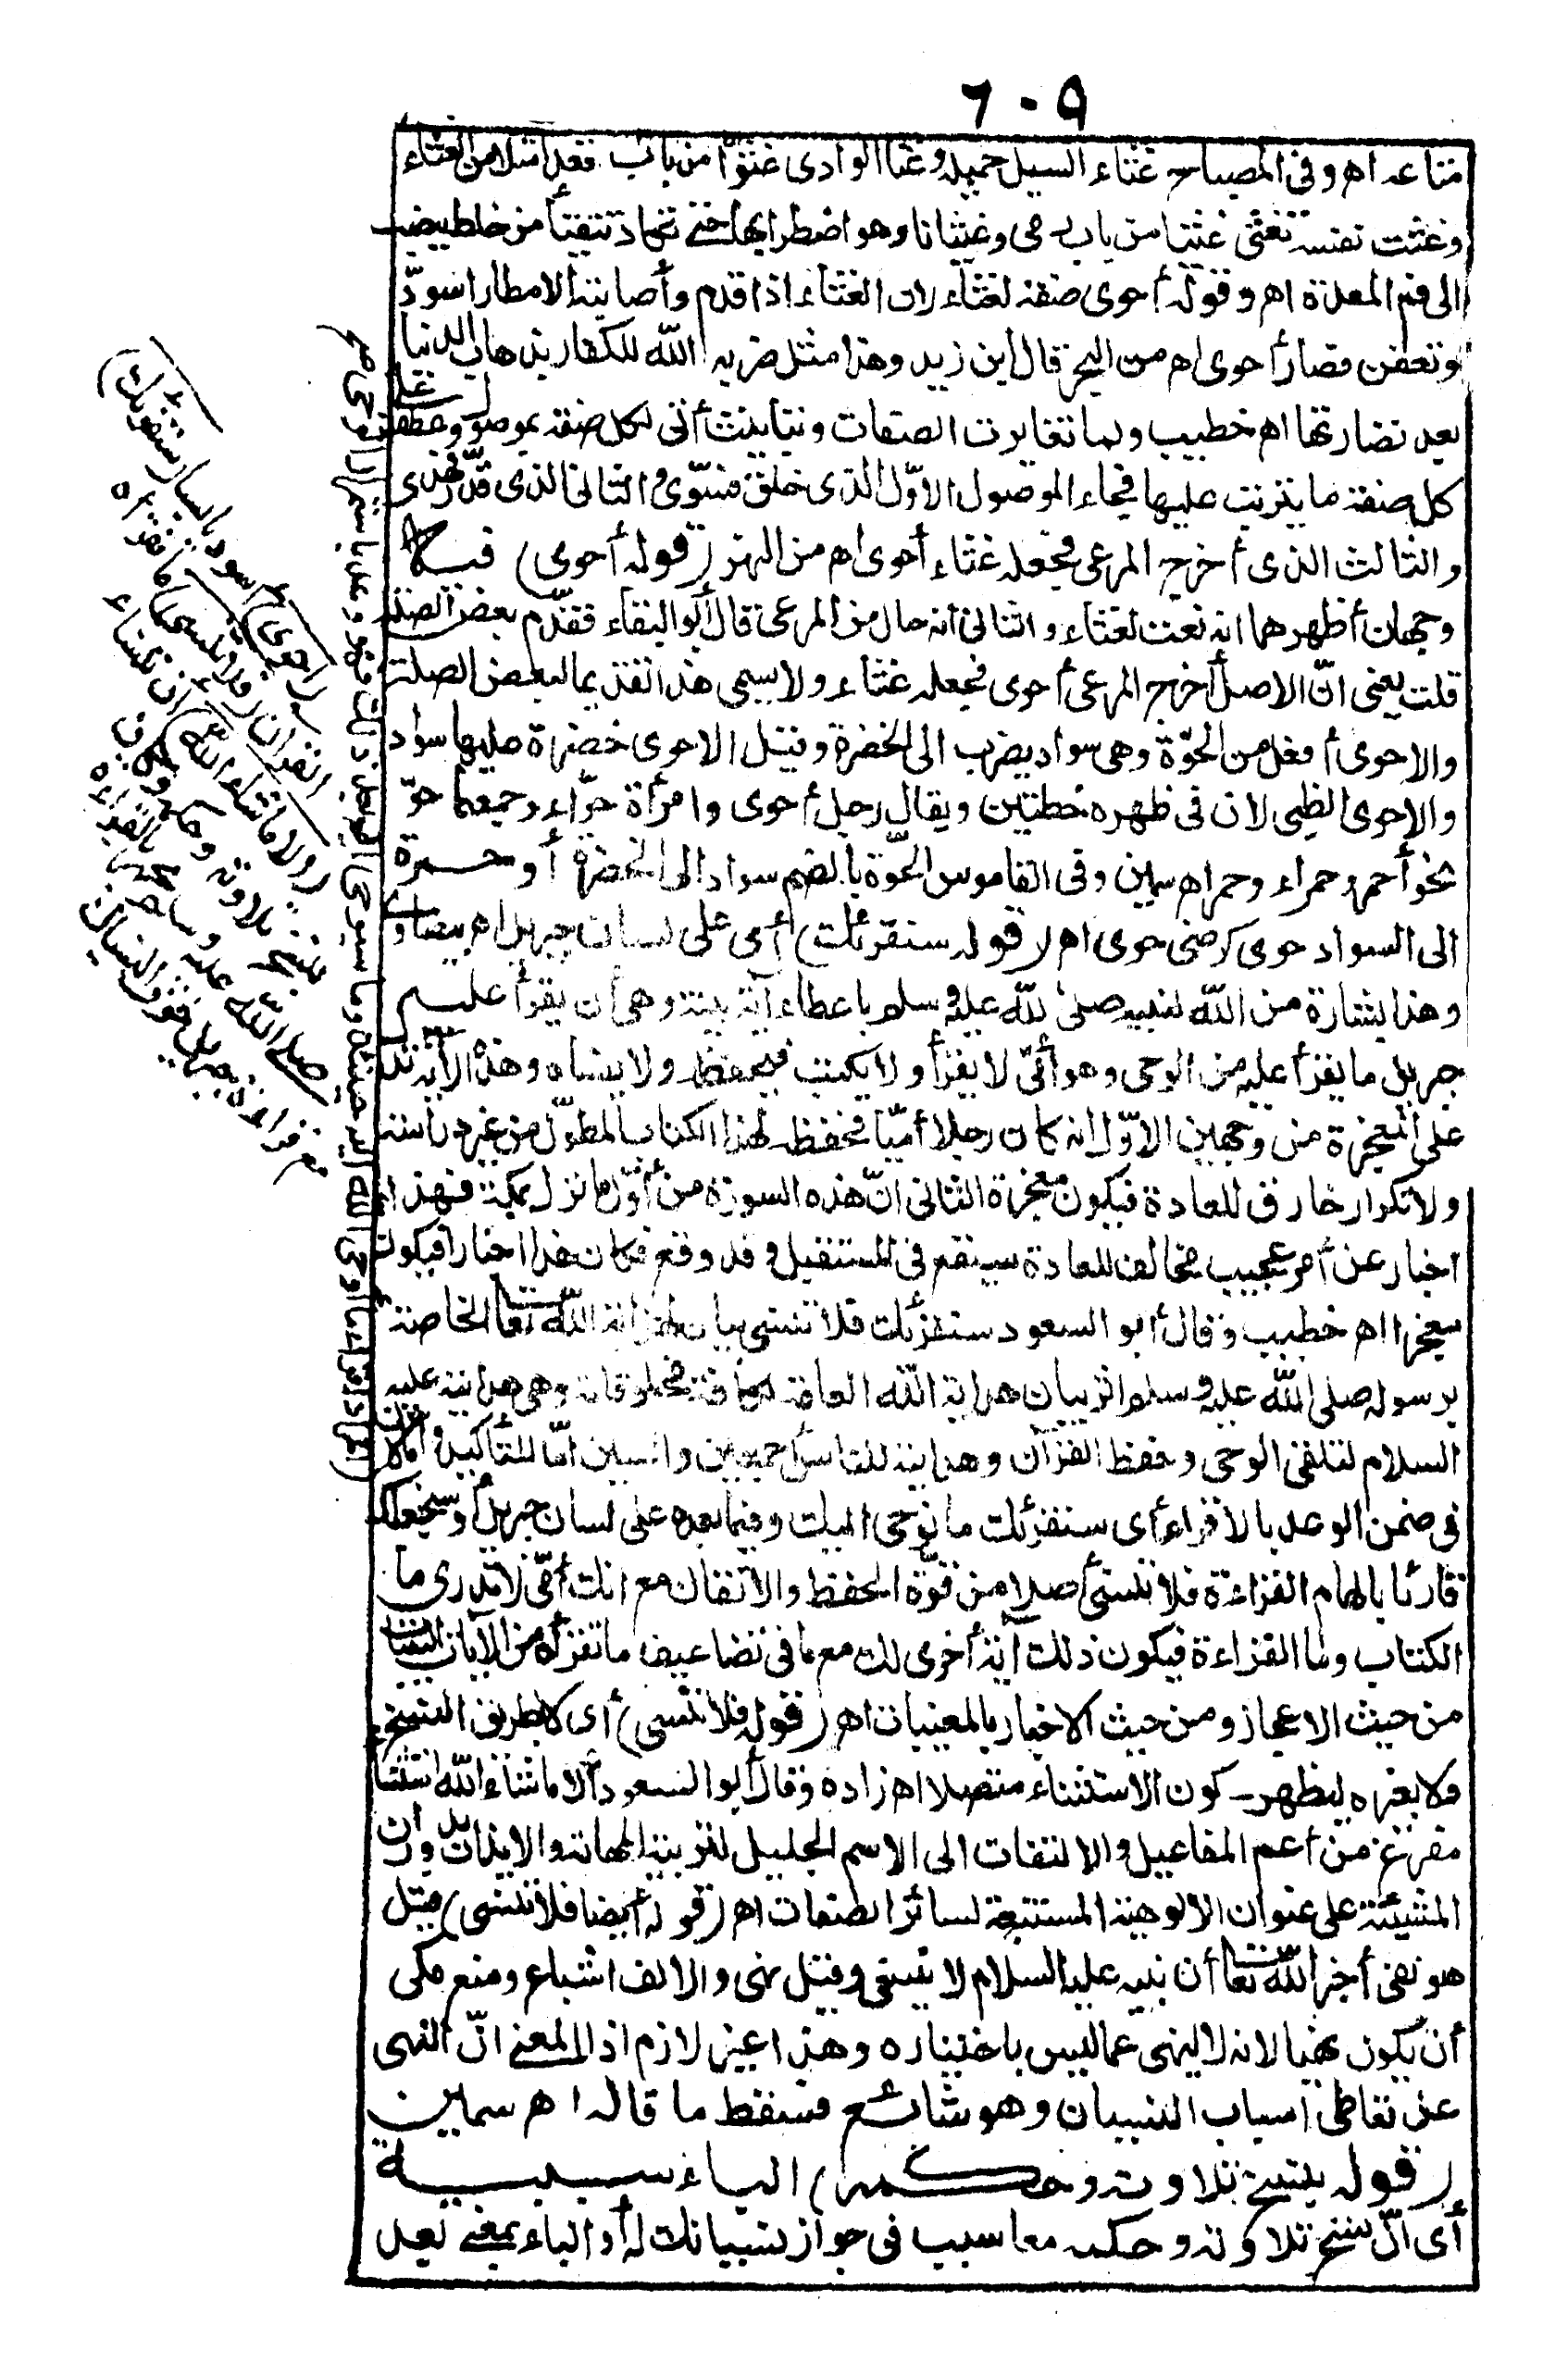 ٦٠٩
متاعه اه وفى المصباح غثاء السيل حميله وغثا الوادى غثوّا من باب قعد امتلأ من الغثاء
وغثت نفسه تغثى غثيا من باب رمى وغثيانا وهو اضطرابها حتى تكاد تتقيأ من خلط ينصب
الى فم المعدة اه وقوله أحوى صفة لغثاء لان الغثاء اذا قدم وأصابته الامطار اسودّ
وتعفن فصار أحوى اه من البحر قال ابن زيد وهذا مثل ضربه الله للكفار بذهاب الدنيا
بعد نضارتها اه خطيب ولما تغايرت الصفات وتباينت أتى لكل صفة بموصول وعطف على
كل صفة ما يترتب عليها فجاء الموصول الاوّل الذى خلق فسوّى والثانى الذى قدّر فهدى
والثالث الذى أخرج المرعى فجعله غثاء أحوى اه من النهر (قوله أحوى) فيه
وجهان أظهرهما انه نعت لغثاء والثانى أنه حال من المرعى قال أبو البقاء فقدّم بعض الصلة
قلت يعنى انّ الاصل أخرج المرعى أحوى فجعله غثاء ولا يسمى هذا تقديما لبعض الصلة
والاحوى أفعل من الحوّة وهى سواد يضرب الى الخضرة وقيل الاحوى خضرة عليها سواد
والاحوى الظبى لان فى ظهره خطتين ويقال رجل أحوى وامرأة حوّاء وجمعهما حوّ
نحو أحمر وحمراء وحمر اه سمين وفى القاموس الحوّة بالضم سواد الى الخضرة أو حمرة
الى السواد حوى كرضى حوى اه (قوله سنقرئك) أى على لسان جبريل اه بيضاوى
وهذا بشارة من الله لنبيه صلى الله عليه وسلم باعطاء آية بينة وهى أن يقرأ عليه
جبريل ما يقرأ عليه من الوحى وهو أمّىّ لا يقرأ ولا يكتب فيحفظه ولا ينساه وهذه الآية تدل
على المعجزة من وجهين الاوّل انه كان رجلا أميّا فحفظه لهذا الكتاب المطوّل من غير دراسة
ولا تكرار خارق للعادة فيكون معجزة الثانى انّ هذه السورة من أوّل ما نزل بمكة فهذا
اخبار عن أمر عجيب مخالف للعادة سيقع فى المستقبل وقد وقع فكان هذا اخبارا فيكون
معجزا اه خطيب وقال أبو السعود سنقرئك فلا تنسى بيان لهداية الله تعالى الخاصة
برسوله صلى الله عليه وسلم اثر بيان هداية الله العامة لكافة مخلوقاته وهى هدايته عليه
السلام لتلقى الوحى وحفظ القرآن وهدايته للناس أجمعين والسين امّا للتأكيد وامّا لان
فى ضمن الوعد بالاقراء أى سنقرئك ما نوحى اليك وفيما بعده على لسان جبريل أو سنجعلك
قارئا بالهام القراءة فلا تنسى أصلا من قوّة الحفظ والاتقان مع انك أمّى لا تدرى ما
الكتاب وما القراءة فيكون ذلك آية أخرى لك مع ما فى تضاعيف ما تقرأه من الآيات البينات
من حيث الاعجاز ومن حيث الاخبار بالمغيبات اه (قوله فلا تنسى) أى لا بطريق النسخ
ولا بغيره ليظهر كون الاستثناء متصلا اه زاده وقال أبو السعود الا ما شاء الله استثناء
مفرغ من أعم المفاعيل والالتفات الى الاسم الجليل لتربية المهابة والايذان بدوران
المشيئة على عنوان الالوهية المستتبعة لسائر الصفات اه (قوله أيضا فلا تنسى) قيل
هو نفى أخبر الله تعالى أن نبيه عليه السلام لا ينسى وقيل نهى والالف اشباع ومنع مكى
أن يكون نهيا لانه لا ينهى عما ليس باختياره وهذا غير لازم اذ المعنى انّ النهى
عن تعاطى أسباب النسيان وهو شائع فسقط ما قاله اه سمين
(قوله بنسخ تلاوته وحكمه) الباء سببية
أى انّ نسخ تلاوته وحكمه معا سبب فى جواز نسيانك له أو الباء بمعنى بعد
(أحوى) أسود يابسا (سنقرئك)
القرآن (فلا تنسى) ما تقرؤه
(الا ما شاء الله) ان تنساه
بنسخ تلاوته وحكمه وكان
صلى الله عليه وسلم يجهر بالقراءة
مع قراءة جبريل خوف النسيان